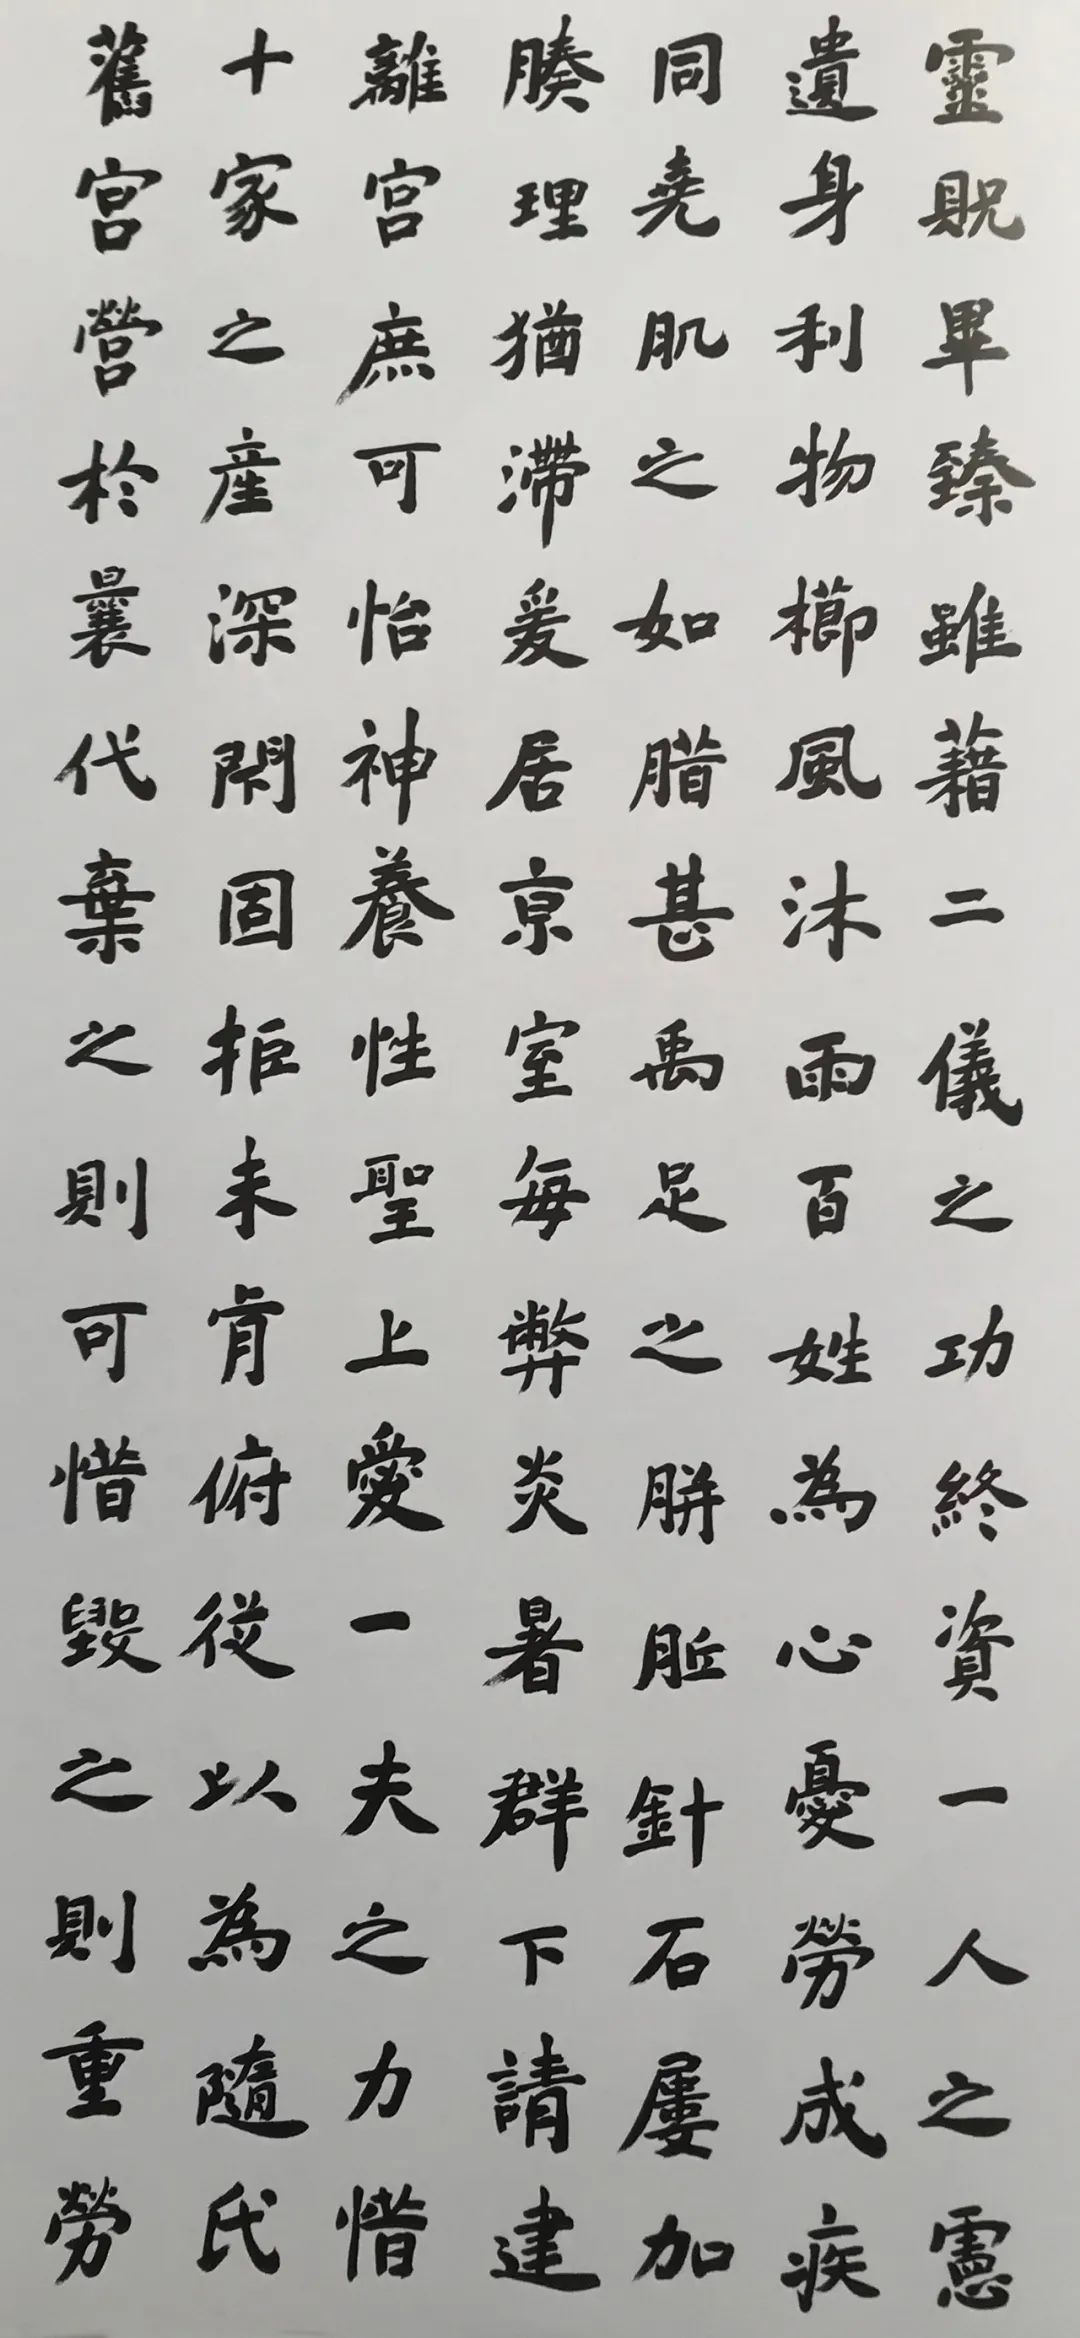 靈貺畢臻雖藉二儀之功終資一人之慮
遺身利物櫛風沐雨百姓為心憂勞成疾
同堯肌之如腊甚禹足之胼胝針石屢加
腠理猶滯爰居京室每弊炎暑群下請建
離宮庶可怡神養性聖上愛一夫之力惜
十家之產深閉固拒未肯俯從以為隨氏
舊宮營於曩代棄之則可惜毀之則重勞